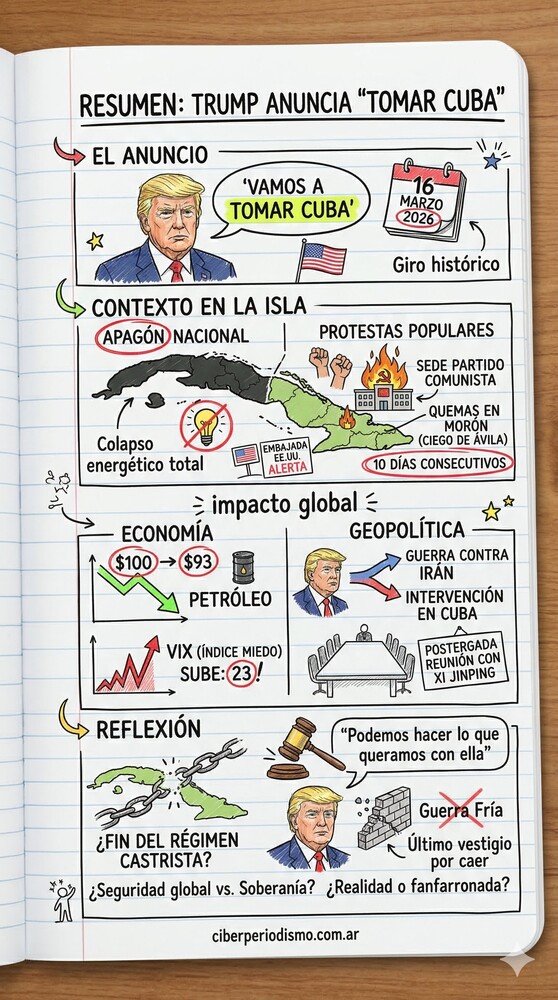 RESUMEN: TRUMP ANUNCIA “TOMAR CUBA”
EL ANUNCIO
‘VAMOS A
TOMAR CUBA’
16
MARZO
2026
Giro histórico
CONTEXTO EN LA ISLA
APAGÓN NACIONAL
Colapso
energético total
EMBAJADA
EE.UU.
ALERTA
PROTESTAS POPULARES
SEDE PARTIDO
COMUNISTA
QUEMAS EN
MORÓN
(CIEGO DE ÁVILA)
10 DÍAS CONSECUTIVOS
impacto global
ECONOMÍA
$100 → $93
PETRÓLEO
VIX (ÍNDICE MIEDO)
SUBE: 23!
GEOPOLÍTICA
GUERRA CONTRA
IRÁN
INTERVENCIÓN
EN CUBA
POSTERGADA
REUNIÓN CON
XI JINPING
REFLEXIÓN
¿FIN DEL RÉGIMEN
CASTRISTA?
“Podemos hacer lo que
queramos con ella”
Guerra Fría
Último vestigio
por caer
¿Seguridad global vs. Soberanía? ¿Realidad o fanfarronada?
ciberperiodismo.com.ar